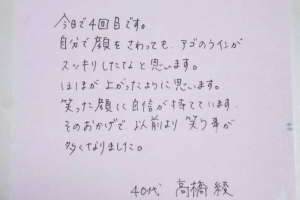 今日で4回目です。
自分で顔をさわっても、アゴのラインが
スッキリしたなと思います。
ほほが上がったように思います。
笑った顔に自信が持てています.
そのおかげで以前より笑う事が
多くなりました。
40代 高橋綾